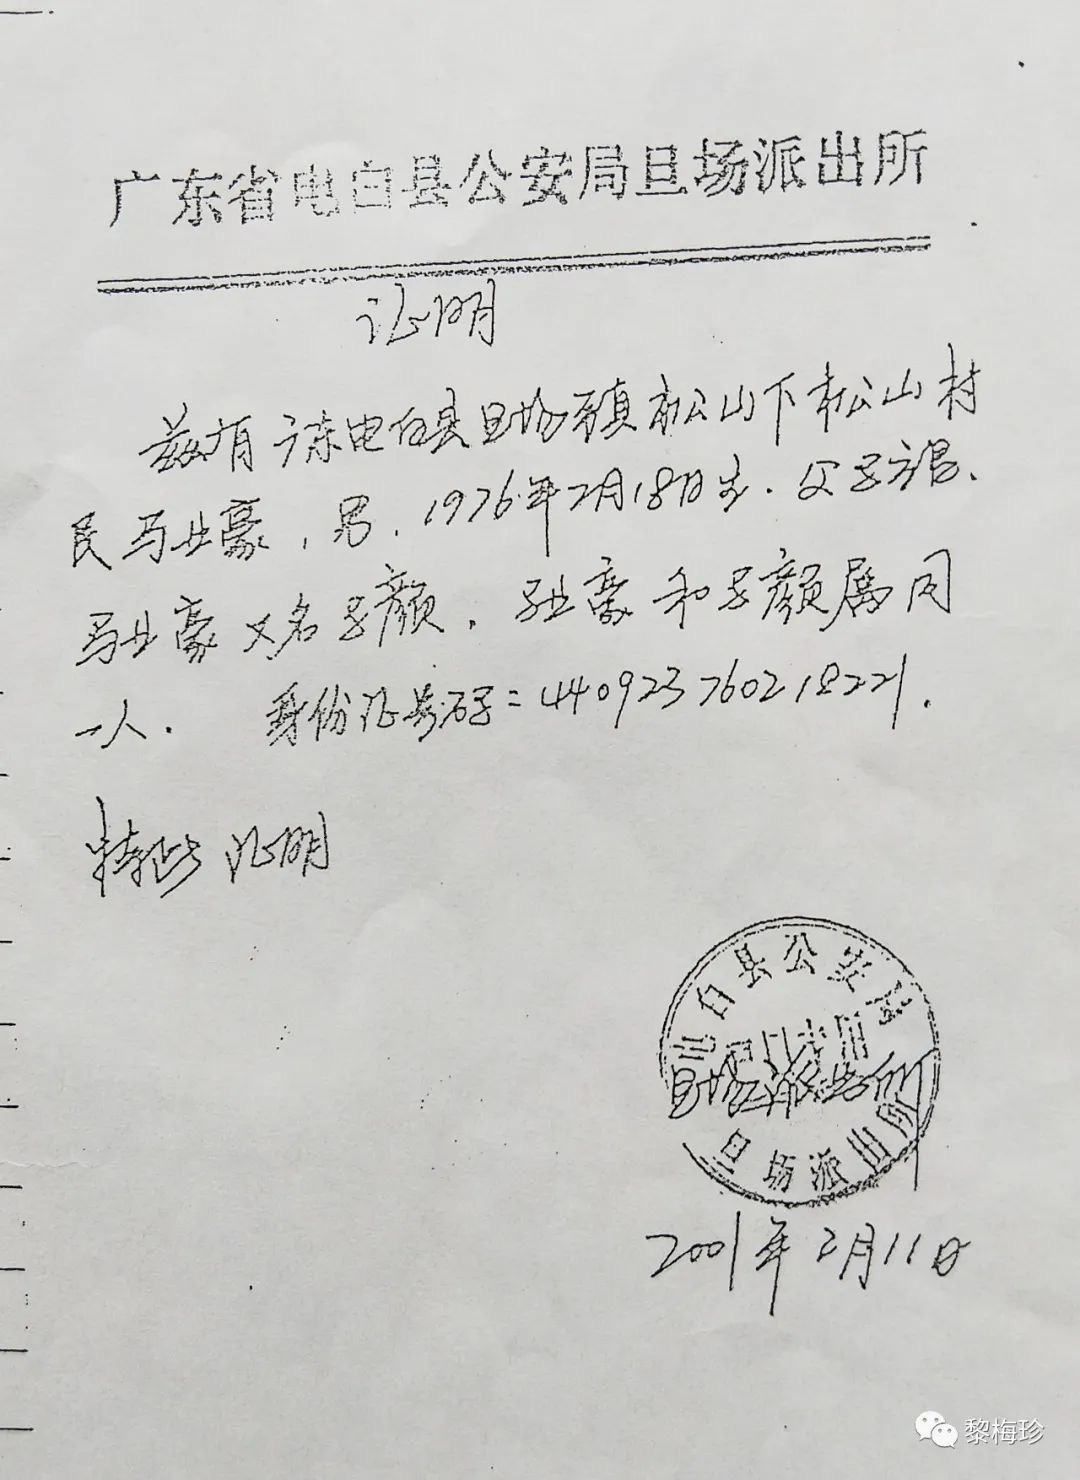 广东省电白县公安局旦场派出所
证明
兹有广东电白县旦场镇松山下松山村
民马业豪,男,1976年2月18日生.父马
马业豪又名马颜,马业豪和马颜属同
一人. 身份证号码:440923760218221.
特此证明
电白县公安局
户口专用
旦场派出所
旦场派出所
2001年2月11日
黎梅珍